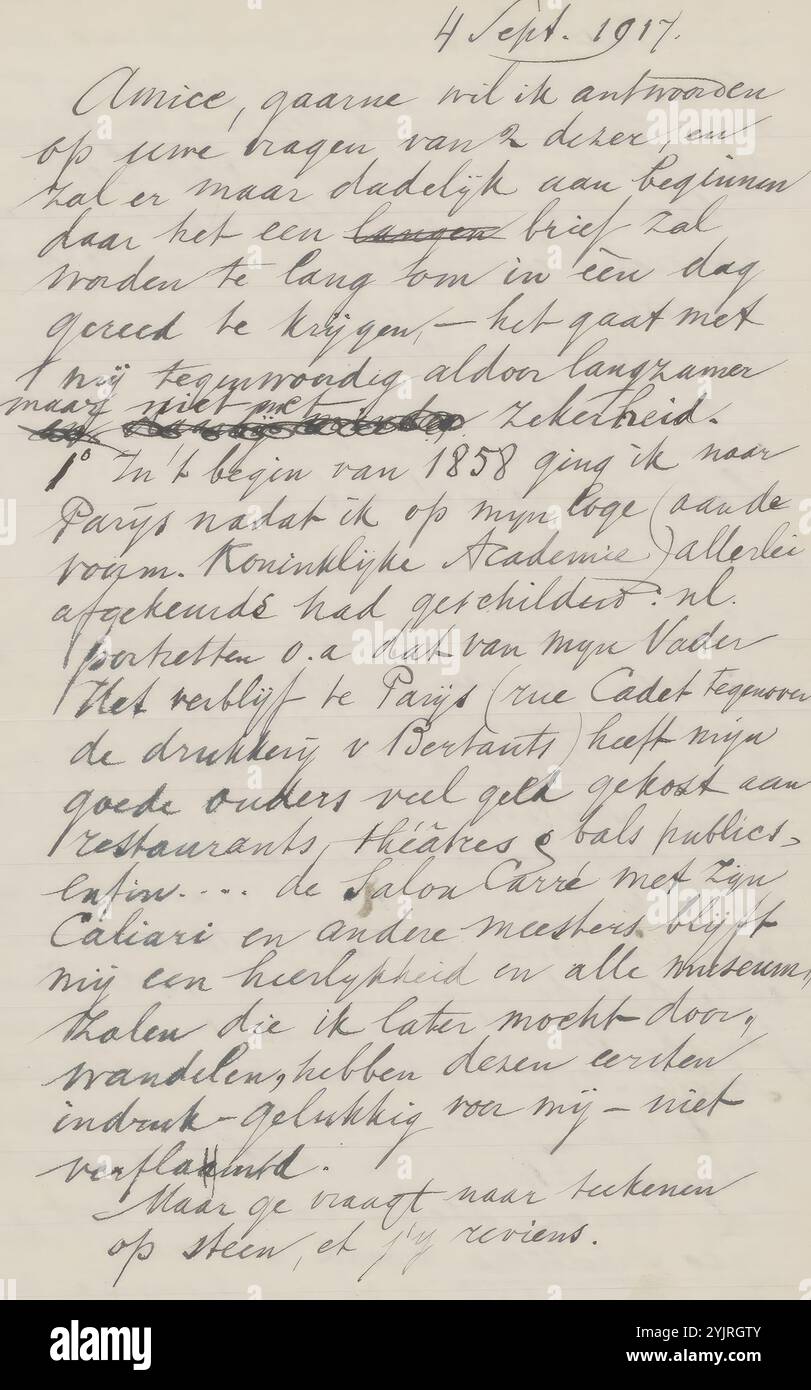 4 Sept. 1917.
Amice, gaarne wil ik antwoorden
op uwe vragen van 2 dezer, en
zal er maar dadelijk aan beginnen
daar het een langen brief zal
worden te lang om in één dag
gereed te krijgen, — het gaat met
mij tegenwoordig aldoor langzamer
maar niet met
zekerheid.
1° In 't begin van 1858 ging ik naar
Parijs nadat ik op mijn loge (aan de
voorm. Koninklijke Academie) allerlei
afgekeurds had geschilderd: nl.
portretten o.a dat van mijn Vader
Het verblijf te Parijs (rue Cadet tegenover
de drukkerij v Bertauts) heeft mijn
goede ouders veel geld gekost aan
restaurants, théâtres & bals publics,
enfin.... de Salon Carré met zijn
Caliari en andere meesters blijft
mij een heerlijkheid en alle museum„
zalen die ik later mocht door„
wandelen, hebben dezen eersten
indruk - gelukkig voor mij - niet
verflaauwd.
Maar ge vraagt naar teekenen
op steen, et j'y reviens.
alamy
Image ID: 2YJRGTY
www.alamy.com